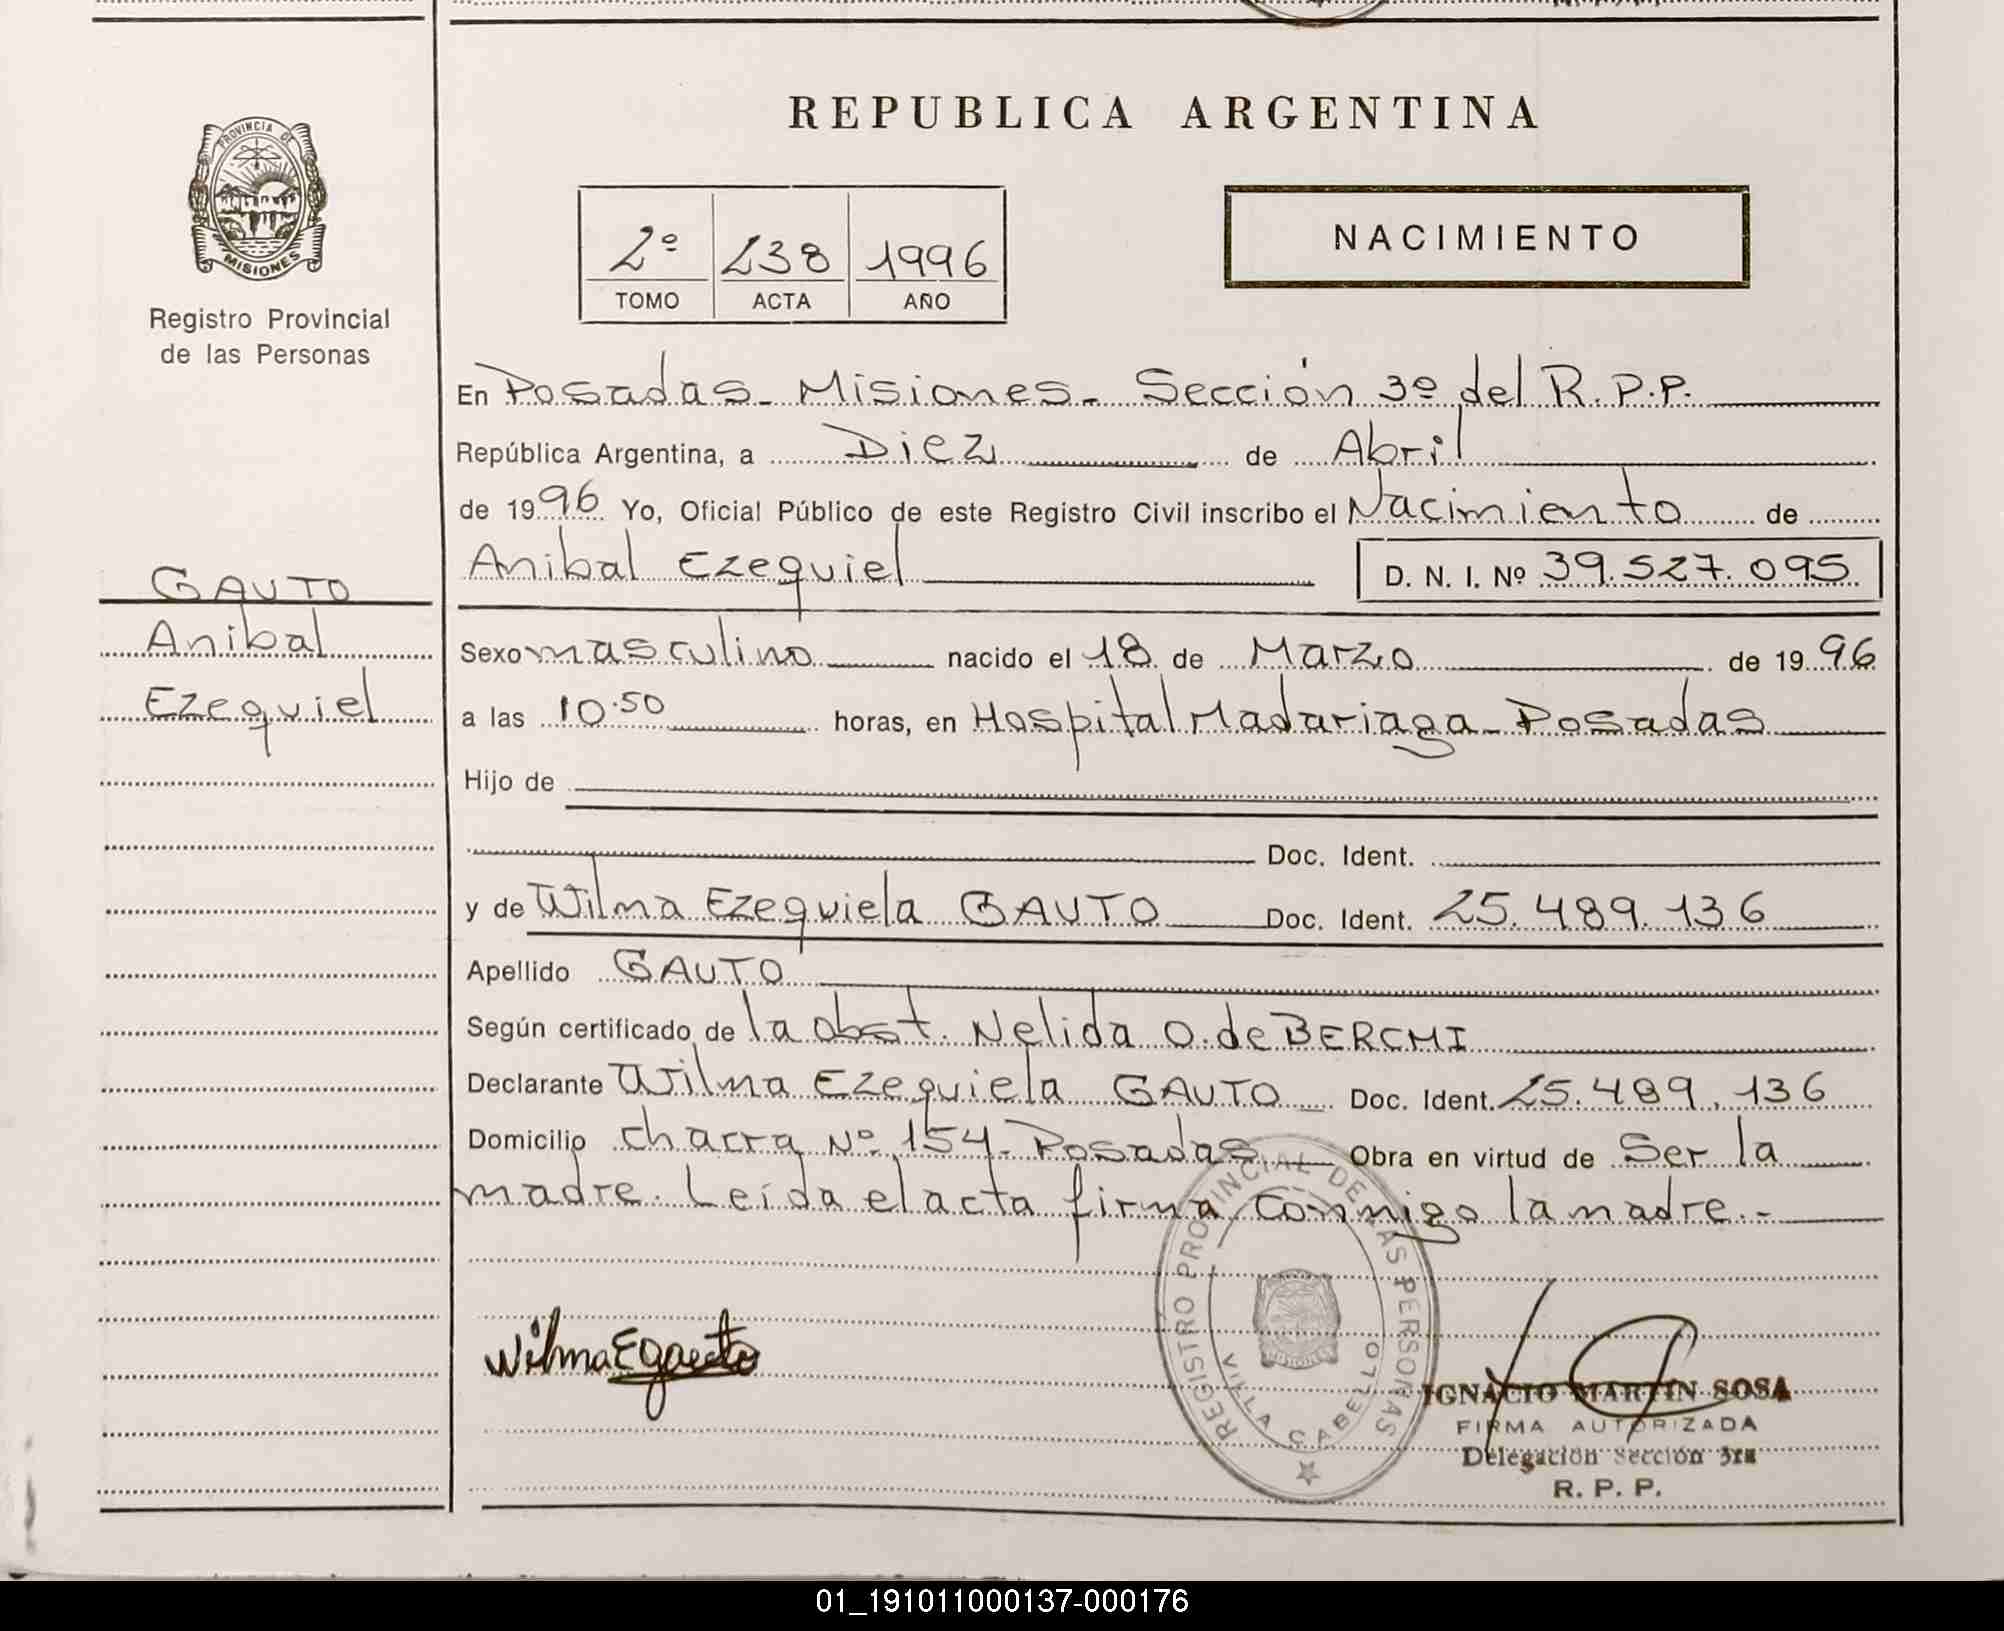 PROVINCIA DE
MISIONES
Registro Provincial
de las Personas
GAUTO
Anibal
Ezequiel
REPUBLICA ARGENTINA
2º 238 1996
TOMO ACTA AÑO
NACIMIENTO
En Posadas - Misiones - Sección 3º del R.P.P.
República Argentina, a Diez de Abril
de 1996 Yo, Oficial Público de este Registro Civil inscribo el Nacimiento de
Anibal Ezequiel D. N. I. Nº 39.527.095
Sexo masculino nacido el 18 de Marzo de 1996
a las 10.50 horas, en Hospital Madariaga - Posadas
Hijo de
Doc. Ident.
y de Wilma Ezequiela GAUTO Doc. Ident. 25.489.136
Apellido GAUTO
Según certificado de la obst. Nelida O. de BERCHI
Declarante Wilma Ezequiela GAUTO Doc. Ident. 25.489.136
Domicilio chacra Nº 154 - Posadas Obra en virtud de Ser la
madre. Leída el acta firma conmigo la madre.-
REGISTRO PROVINCIAL DE LAS PERSONAS
VILLA CABELLO
MISIONES
Wilma E gauto
IGNACIO MARTIN SOSA
FIRMA AUTORIZADA
Delegación Sección 3ra
R. P. P.
01_191011000137-000176